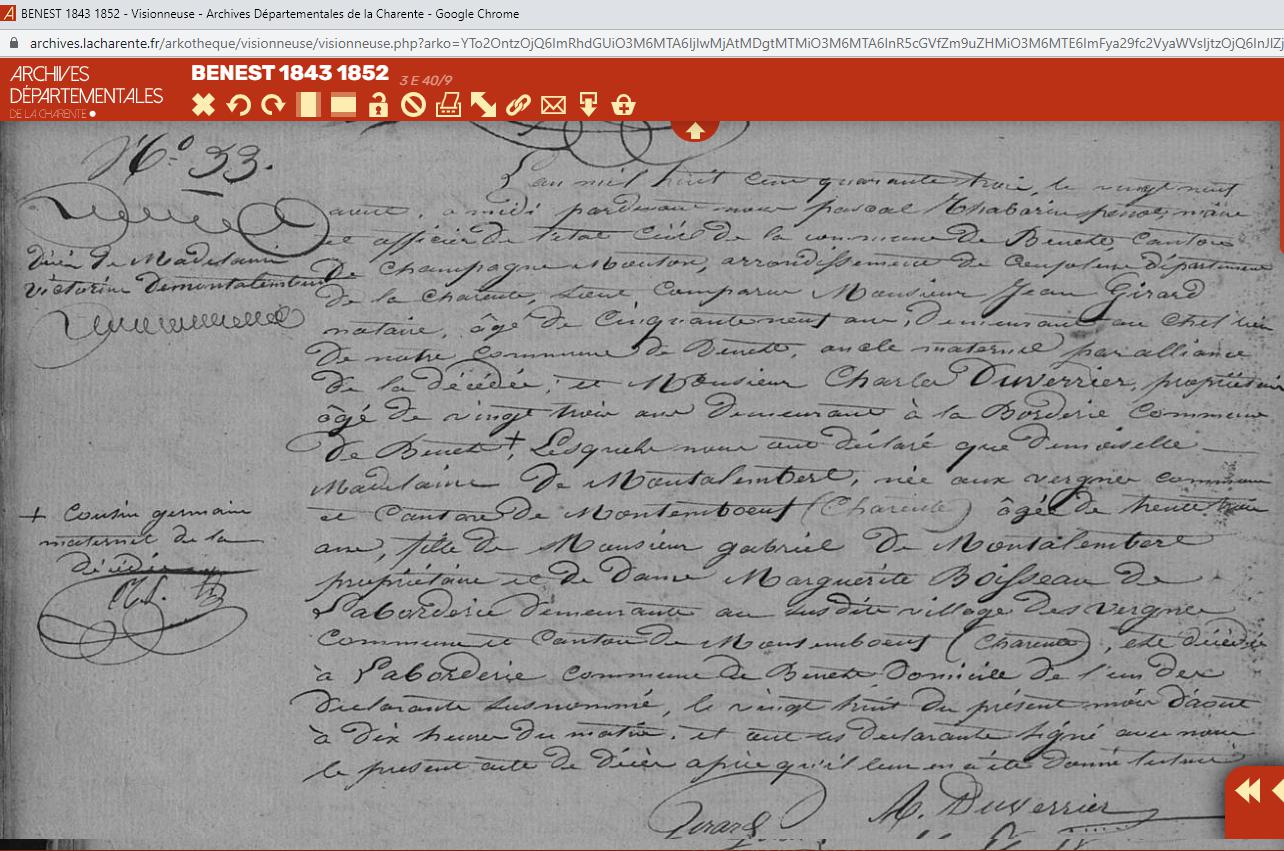 BENEST 1843 1852 - Visionneuse - Archives Départementales de la Charente - Google Chrome
archives.lacharente.fr/arkotheque/visionneuse/visionneuse.php?arko=
ARCHIVES
DÉPARTEMENTALES
DE LA CHARENTE
BENEST 1843 1852 3 E 40/9
N° 33.
décès de Madelaine
Victorine Demontalembert
L'an mil huit cent quarante trois, le vingt neuf
aout, a midi pardevant nous pascal maire
et officier de l'état civil de la commune de Benest, canton
de Champagne Mouton, arrondissement de Confolens département
de la Charente, sont comparus Monsieur Jean Girard
notaire, âgé de cinquante neuf ans, demeurant au chef lieu
de notre commune de Benest, oncle maternel par alliance
de la décédée; et Monsieur Charles Duverrier, propriétaire
âgé de vingt trois ans demeurant à la Borderie commune
de Benest +, Lesquels nous ont déclaré que demoiselle
Madelaine de Montalembert, née aux vergnes commune
et Canton de Montemboeuf (Charente) âgée de trente trois
ans, fille de Monsieur gabriel de Montalembert
propriétaire et de dame Marguerite Boisseau de
Laborderie demeurants au susdit village des vergnes
commune et Canton de Montemboeuf (Charente), est décédée
à Laborderie commune de Benest domicile de l'un des
déclarants susnommé, le vingt huit du présent mois d'aout
à dix heures du matin. et ont les déclarants signé avec nous
le présent acte de décès après qu'il leur en a été donné lecture
+ cousin germain
maternel de la
décédée
Girard
A. Duverrier